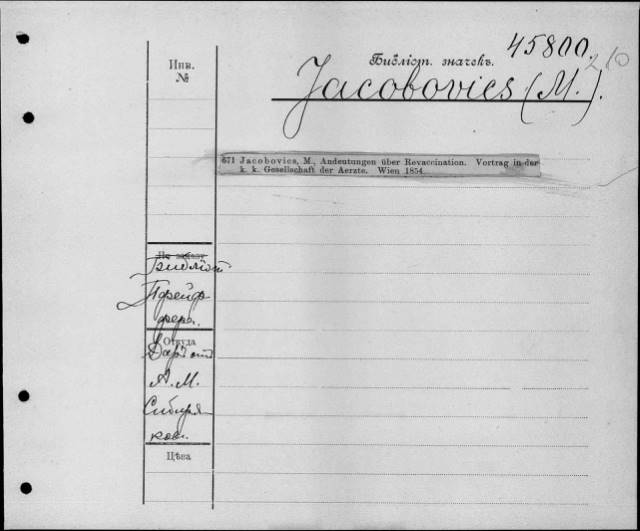 45800
210
Инв.
№
Библіот. значекъ.
Jacobovics (M.).
671 Jacobovics, M., Andeutungen über Revaccination. Vortrag in der
k. k. Gesellschaft der Aerzte. Wien 1854.
Библіот
Пфейф
фера.
Откуда
Даръ отъ
А. М.
Сибиря
кова.
Цѣна